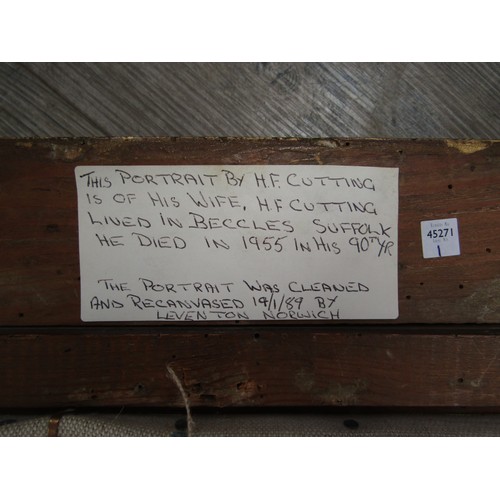 THIS PORTRAIT BY H.F. CUTTING
IS OF HIS WIFE. H F CUTTING
LIVED IN BECCLES SUFFOLK
HE DIED IN 1955 IN HIS 90TH YR
THE PORTRAIT WAS CLEANED
AND RECANVASED 19/1/89 BY
LEVENTON NORWICH
45271
1